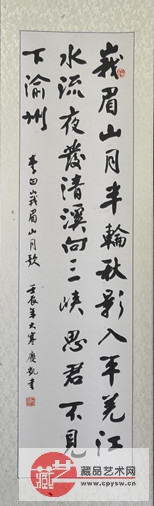 峩眉山月半輪秋影入平羌江
水流夜發清溪向三峽思君不見
下渝州
李白峩眉山月歌
壬辰年大寒慶凱書
藏艺
藏品艺术网
www.cpysw.cn